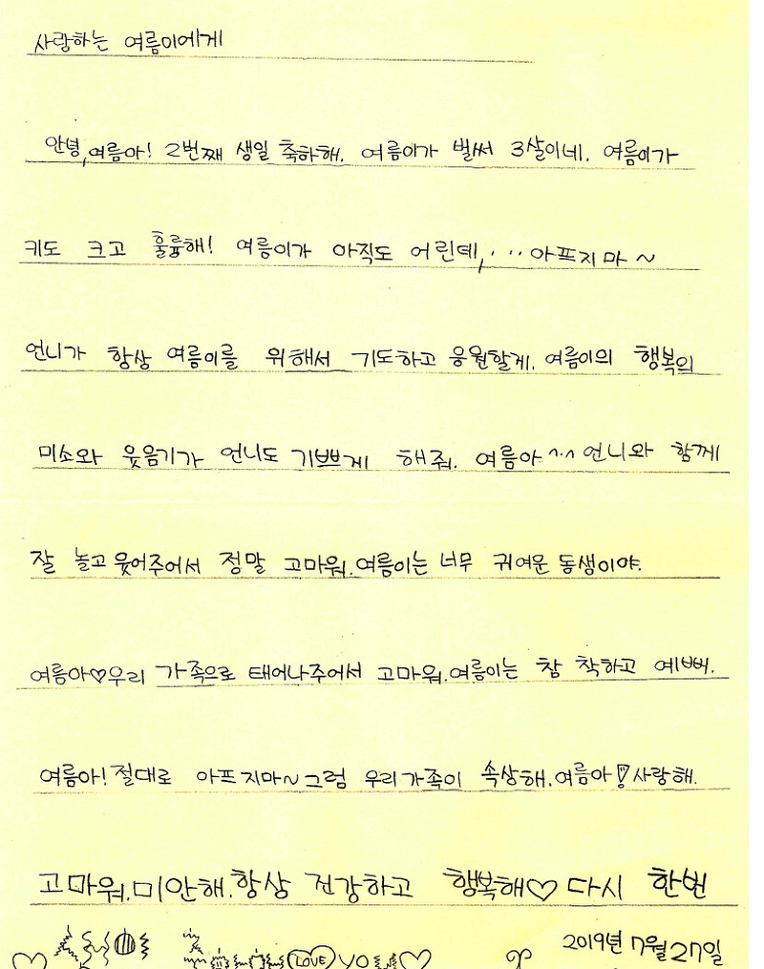 사랑하는 여름이에게
안녕, 여름아! 2번째 생일 축하해. 여름이가 벌써 3살이네. 여름이가
키도 크고 훌륭해! 여름이가 아직도 어린데,··· 아프지마~
언니가 항상 여름이를 위해서 기도하고 응원할게. 여름이의 행복의
미소와 웃음기가 언니도 기쁘게 해줘. 여름아^^ 언니와 함께
잘 놀고 웃어주어서 정말 고마워. 여름이는 너무 귀여운 동생이야.
여름아♡우리 가족으로 태어나주어서 고마워. 여름이는 참 착하고 예뻐.
여름아! 절대로 아프지마~ 그럼 우리가족이 속상해. 여름아! 사랑해.
고마워. 미안해. 항상 건강하고 행복해♡ 다시 한번
2019년 7월 27일
LOVE YO